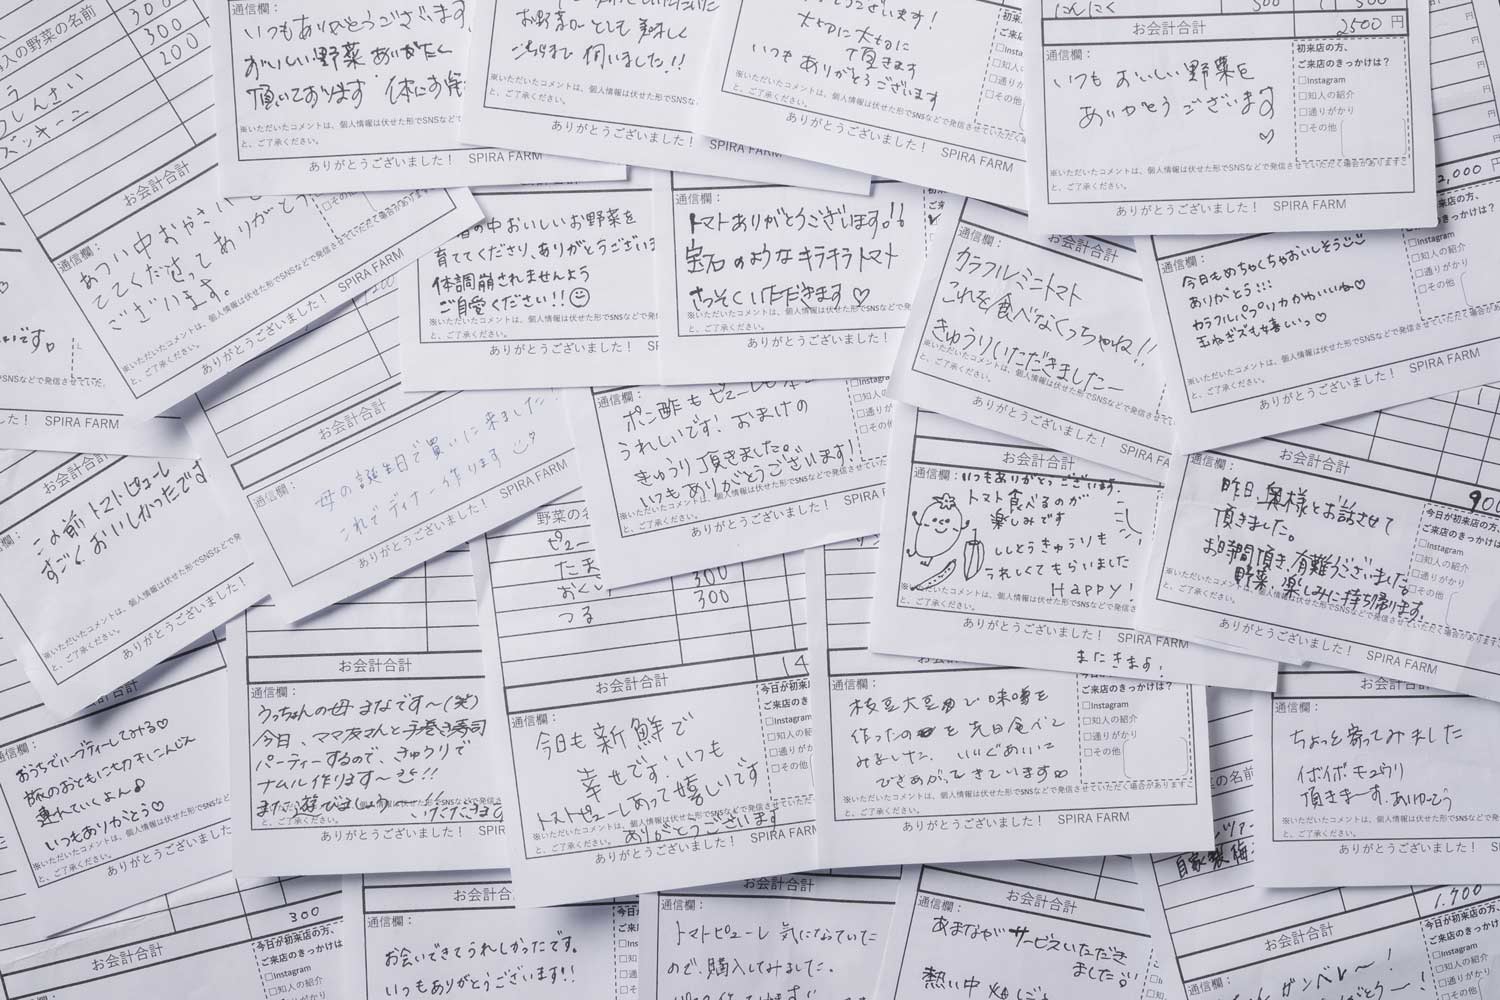 入の野菜の名前
300
300
200
ズッキーニ
お会計合計
通信欄：
あつい中おやさい
てくださって ありがとう
ございます。
※いただいたコメントは、個人情報は伏せた形でSNSなどで発信させていただく場合があります
と、ご了承ください。
ありがとうございました！ SPIRA FARM
通信欄：
いつもありがとうございます
おいしい野菜 ありがたく
頂いております
※いただいたコメントは、個人情報は伏せた形でSNSなど
と、ご了承ください。
ありがとうございました！ SPIRA FARM
お野菜 としても 美味しく
こちらまで 伺いました!!
※いただいたコメントは、個人情報は伏せた形でSNSな
と、ご了承ください。
ありがとうございました！ SPIRA FARM
ございます!
大切に大切に
頂きます
いつも ありがとうございます
※いただいたコメントは、個人情報は伏せた形でSNSなどで発信させていただく
と、ご了承ください。
ありがとうございました！ SPIRA FARM
にんにく
500
500
お会計合計
2500 円
通信欄：
いつも おいしい野菜を
ありがとう ございます
♡
初来店の方、
ご来店のきっかけは？
□Instagram
□知人の紹介
□通りがかり
□その他
※いただいたコメントは、個人情報は伏せた形でSNSなどで発信させていただく場合がありますこ
と、ご了承ください。
ありがとうございました！ SPIRA FARM
の中おいしいお野菜を
育ててくださり、ありがとうございま
体調崩されませんよう
ご自愛ください!!
※いただいたコメントは、個人情報は伏せた形でSNS
と、ご了承ください。
ありがとうございました！ SP
通信欄：
トマトありがとうございます!!
宝石のようなキラキラトマト
さっそくいただきます♡
※いただいたコメントは、個人情報は伏せた形でSNSなど
と、ご了承ください。
ありがとうございました！
お会計合計
通信欄：
カラフルミニトマト
これを食べなくっちゃね!!
きゅうりいただきましたー
※いただいたコメントは、個人情報は伏せた形でSNSなどで発信
と、ご了承ください。
ありがとうございました！
2,000 円
通信欄：
今日もめちゃくちゃおいしそう
ありがとう!!!
カラフルパプリカかわいいね♡
玉ねぎズも嬉しいっ♡
□Instagram
□知人の紹介
□通りがかり
□その他
※いただいたコメントは、個人情報は伏せた形でSNSなどで発信させていただく場合があ
と、ご了承ください。
ありがとうございました！ SPIRA FARM
SNSなどで発信させていただ
ました！ SPIRA FARM
お会計合計
通信欄：
母の誕生日で買いに来ました!
これでディナー作ります
ありがとうございました！ SPIRA FARM
通信欄：
ポン酢もピューレも
うれしいです! おまけの
きゅうり頂きました。
いつもありがとうございます!
□知人
□通りが
□その他
※いただいたコメントは、個人情報は伏せた形でSNSなどで
と、ご了承ください。
ありがとうございました！ SPIRA FARM
お会計合計
通信欄：
いつもありがとうございます。
トマト食べるのが
楽しみです
ししとうきゅうりも
うれしくてもらいました
Happy!
※いただいたコメントは、個人情報は伏せた形でSNSなどで発信さ
と、ご了承ください。
ありがとうございました！ SPIRA FARM
またきます。
お会計合計
900
通信欄：
昨日、奥様とお話させて
頂きました。
お時間頂き、有難うございました。
野菜、楽しみに持ち帰ります。
今日が初来店の方、
ご来店のきっかけは？
□Instagram
□知人の紹介
□通りがかり
□その他
※いただいたコメントは、個人情報は伏せた形でSNSなどで発信させていただく場合があります
と、ご了承ください。
ありがとうございました！ SPIRA FARM
お会計合計
この前トマトピューレ
すごく、おいしかったです
※いただいたコメントは、個人情報は伏せた形でSNSなどで発
と、ご了承ください。
ありがとうございました！
野菜の名
300
300
つる
お会計合計
14
通信欄：
今日も新鮮で
幸せです! いつも
トマトピューレあって嬉しいです
ありがとうございます
今日が初来
ご来店の
□Instagram
□知人の
□通りがか
□その他
※いただいたコメントは、個人情報は伏せた形でSNSなどで
と、ご了承ください。
ありがとうございました！ SPIRA FARM
お会計合計
通信欄：
うっちょんの母 まなです〜(笑)
今日、ママ友さんと手巻き寿司
パーティーするので、きゅうりで
ナムル作ります〜!!
また遊びましょう
いただきます
と、ご了承ください。
ありがとうございました！ SPIR
通信欄：
枝豆大豆で味噌を
作ったのを先日食べて
みました。いいぐあいに
できあがってきています♡
ご来店のきっかけは？
□Instagram
□知人の紹介
□通りがかり
□その他
※いただいたコメントは、個人情報は伏せた形でSNSなどで発信させていただく場合がありますこ
と、ご了承ください。
ありがとうございました！ SPIRA FARM
お会計合計
通信欄：
ちょっと寄ってみました
イボイボキュウリ
頂きまーす。ありがとう
※いただいたコメントは、個人情報は伏せた形でSNSなど
と、ご了承ください。
ありがとうございました！
お会計合計
通信欄：
おうちでハーブティーしてみる♡
旅のおともにセカキにんじん
連れていくよん♪
いつもありがとう♡
※いただいたコメントは、個人情報は伏せた形でSNSなど
と、ご了承ください。
ありがとうございました
300
お会計合計
今日が初来店の方、
ご来店のきっかけは？
□Instagram
□知人の紹介
□通りがかり
お会計合計
通信欄：
お会いできてうれしかったです。
いつもありがとうございます!!
お会計合計
通信欄：
トマトピューレ 気になっていた
ので、購入してみました。
お会計合計
通信欄：
あまながサービスいただき
ました!
熱い中
自家製梅
1,700
お会計合計
通信欄：
今日が初来店の方、
ご来店のきっかけは？
□Instagram
□知人の紹介
□通りがかり